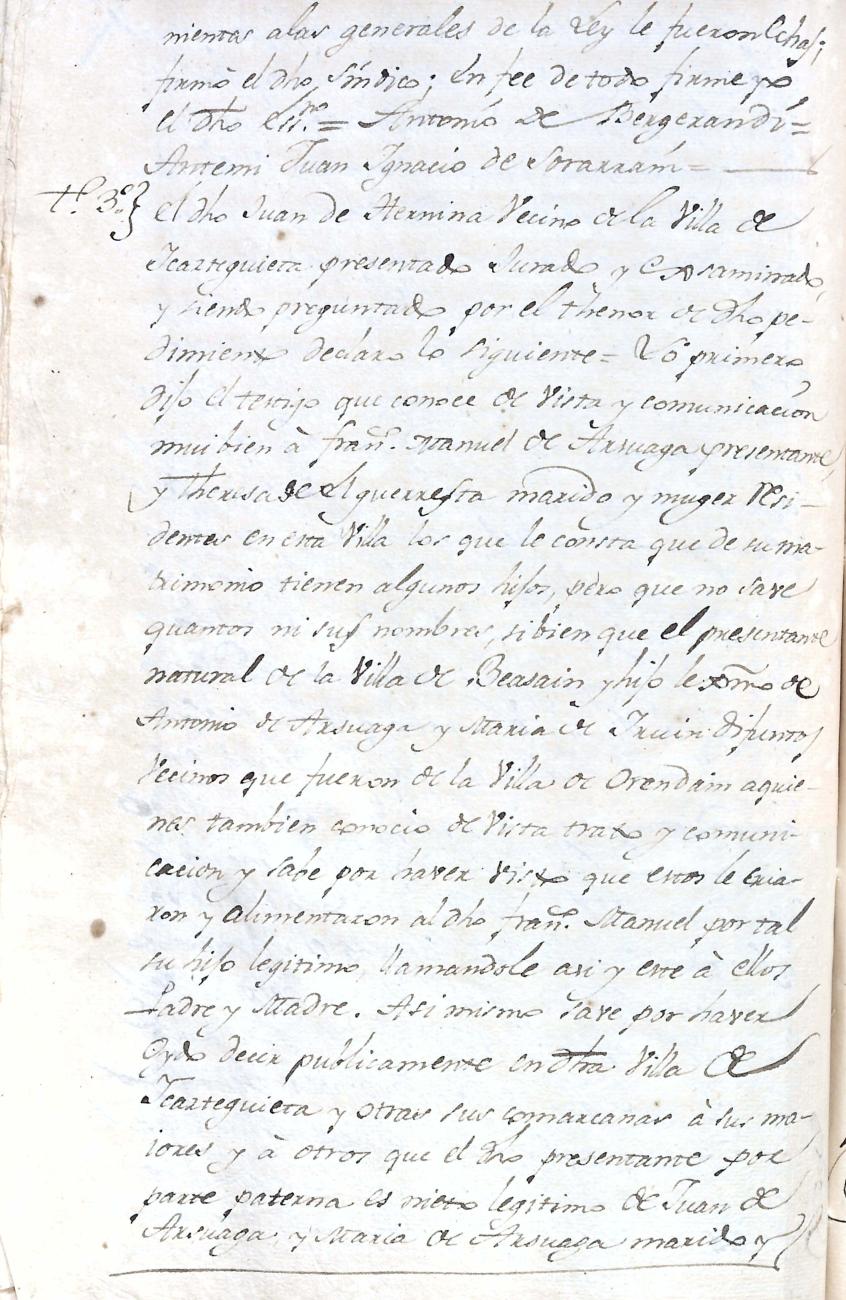 nientes a las generales de la Ley le fueron Echas;
firmó el dho síndico; En fee de todo firme yo
el dho essno. = Antonio de Bergerandi =
Antemi Juan Ignacio de Sorarrain =
tº. 3º.} El dho Juan de Hernina Vecino de la Villa de
Icazteguieta presentado Jurado y Exsaminado,
y siendo preguntado por el thenor de dho pe-
dimiento declaro lo siguiente = Lo primero
dijo el testigo que conoce de Vista y comunicación
mui bien à franco. Manuel de Arsuaga presentante,
y Theresa de Elguerresta marido y muger Resi-
dentes en esta Villa los que le consta que de su ma-
trimonio tienen algunos hijos, pero que no save
quantos ni sus nombres, si bien que el presentante
natural de la Villa de Beasain y hijo lexmo de
Antonio de Arsuaga y Maria de Iruin difuntos
Vecinos que fueron de la Villa de Orendain a quie-
nes tambien conocio de Vista trato y comuni-
cacion y sabe por haver Visto que estos le cria-
ron y alimentaron al dho franco. Manuel por tal
su hijo legitimo, llamandole asi y este à ellos
Padre y Madre. Asi mismo save por haver
Oydo decir publicamente en dtha Villa de
Icazteguieta y otras sus comarcanas à sus ma-
iores y à otros que el dho presentante por
parte paterna es nieto legitimo de Juan de
Arsuaga, y Maria de Arsuaga marido y